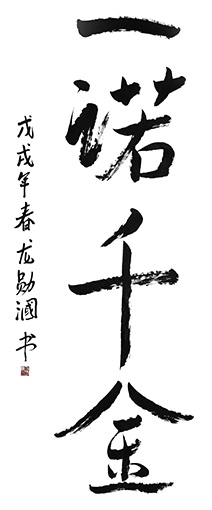 一诺千金
戊戌年春龙勋国书